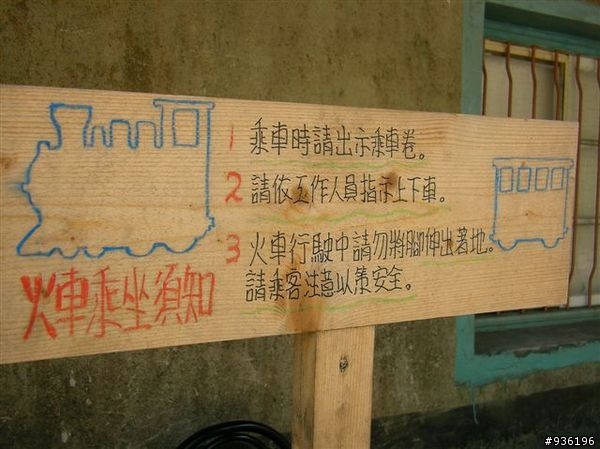 火車乘坐須知
1 乘車時請出示乘車卷。
2 請依工作人員指示上下車。
3 火車行駛中請勿將腳伸出著地。
請乘客注意以策安全。
#936196